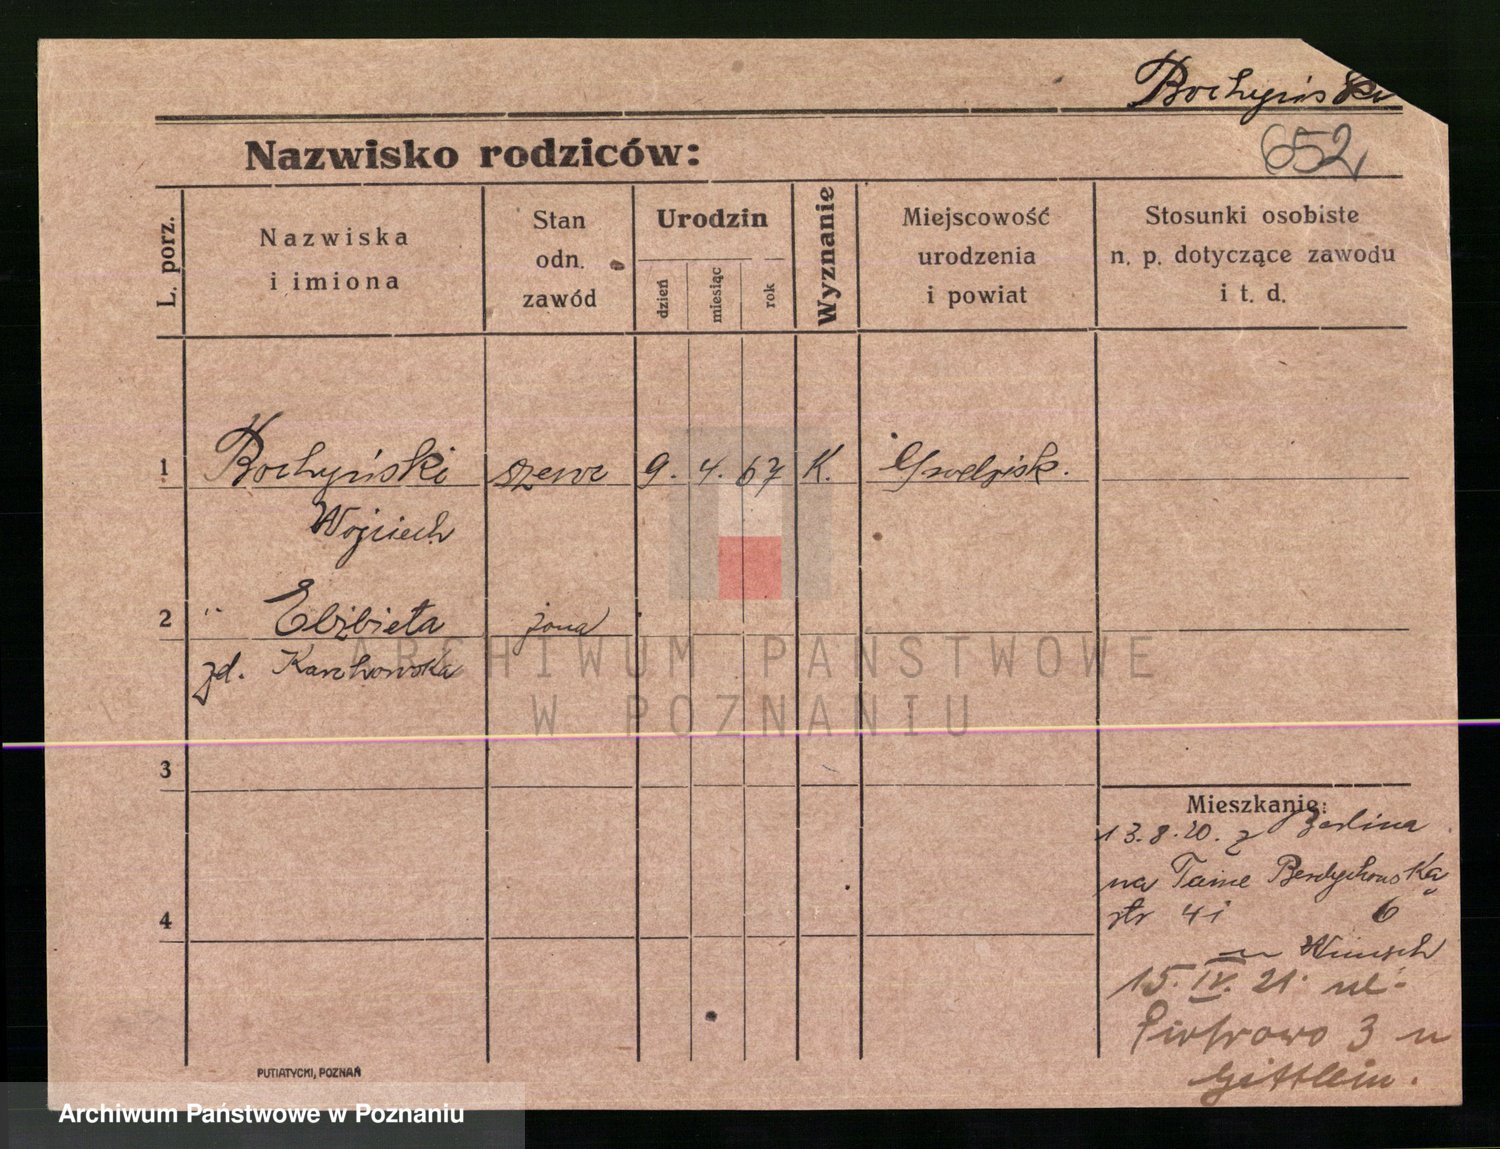 Bochyński
652
Nazwisko rodziców:
L. porz.
Nazwiska
i imiona
Stan
odn.
zawód
Urodzin
dzień
miesiąc
rok
Wyznanie
Miejscowość
urodzenia
i powiat
Stosunki osobiste
n. p. dotyczące zawodu
i t. d.
1 Bochyński szewc 9. 4. 67 K. Grodzisk.
Wojciech
2 " Elżbieta żona
zd. Karchowska
ARCHIWUM PAŃSTWOWE
W POZNANIU
3
Mieszkanie:
13.8.20. z Berlina
na Tamę Berdychowską
str 41 6
u
4
15. IV. 21. ul.
Piotrowo 3 u
Gittlein.
PUTIATYCKI, POZNAŃ
Archiwum Państwowe w Poznaniu